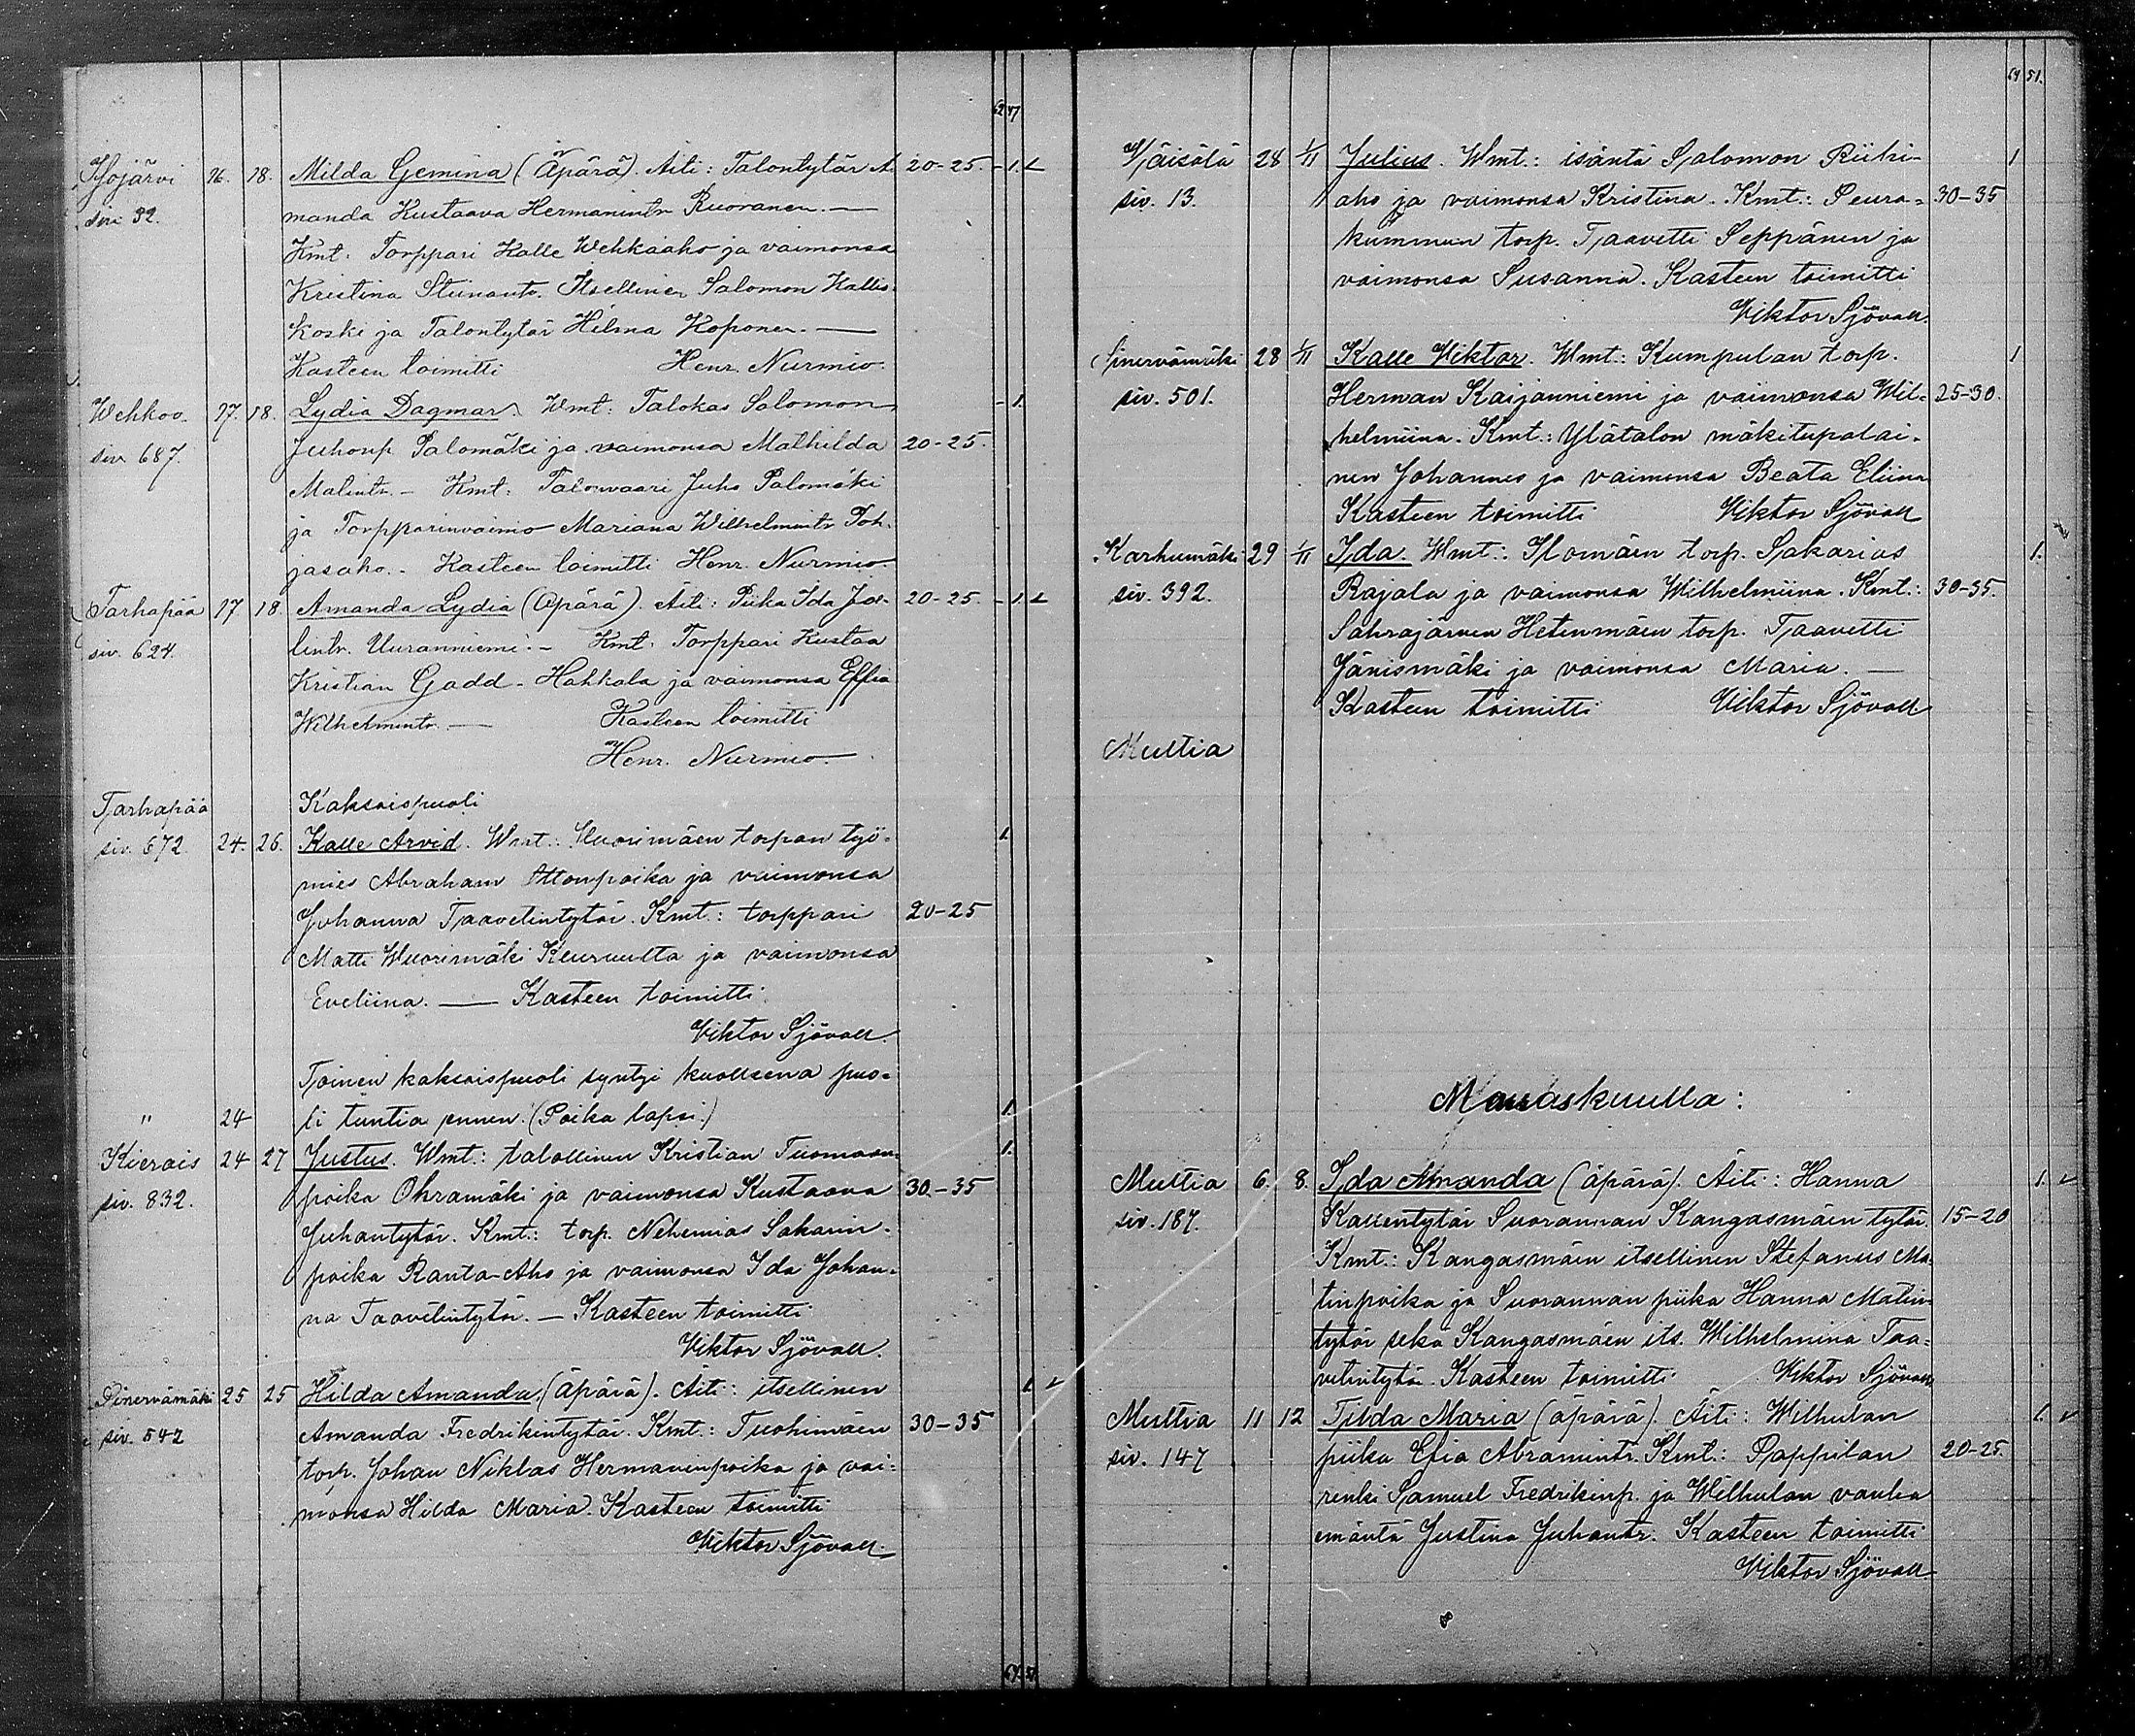 62 47
Ihojärvi 16. 18. Milda Gemina (Äpärä). Äiti: Talontytär A- 20-25. - 1.
siv 32. manda Kustaava Hermanintr Ruoranen. —
Kmt: Torppari Kalle Wehkaaho ja vaimonsa
Kristina Itsellinen Salomon Kallio-
koski ja Talontytär Hilma Koponen. —
Kasteen toimitti Henr. Nurmio.
Wehkoo. 17. 18. Lydia Dagmar. Wmt: Talokas Salomon - 1.
siv. 687. Juhonp. Palomäki ja vaimonsa Mathilda 20-25.
Matintr. - Kmt: Talonvaari Juho Palomäki
ja Torpparinvaimo Mariana Wilhelmintr Poh-
jasaho. - Kasteen toimitti Henr. Nurmio
Tarhapää 17 18. Amanda Lydia (Äpärä). Äiti: Piika Ida Joe- 20-25. - 1.
siv. 624. lintr. Uuranniemi. - Kmt: Torppari Kustaa
Kristian Gadd - Hahkala ja vaimonsa Effia
Wilhelmintr. — Kasteen toimitti
Henr. Nurmio.
Tarhapää Kaksoispuoli
siv. 672. 24. 26. Kalle Arvid. Wmt.: Wuorimäen torpan työ- 1.
mies Abraham Ottonpoika ja vaimonsa
Johanna Taavetintytär. Kmt.: torppari 20-25
Matti Wuorimäki Keuruulta ja vaimonsa
Eveliina. — Kasteen toimitti
Viktor Sjövall.
Toinen kaksoispuoli syntyi kuolleena puo-
" 24 li tuntia ennen. (Poika lapsi.) 1.
Kierais 24 27 Justus. Wmt.: talollinen Kristian Tuomaan- 1.
siv. 832. poika Ohramäki ja vaimonsa Kustaava 30-35
Juhantytär. Kmt.: torp. Nehemias Sakarin-
poika Ranta-Aho ja vaimonsa Ida Johan-
na Taavetintytär. — Kasteen toimitti
Viktor Sjövall.
Sinervämäki 25 25 Hilda Amanda (äpärä). Äiti: itsellinen 1.
siv. 542 Amanda Fredrikintytär. Kmt.: Tuohimäen 30-35
torp. Johan Niklas Hermaninpoika ja vai-
monsa Hilda Maria. Kasteen toimitti
Viktor Sjövall.
64 51
64 51.
Väisälä 28 1/11 Julius. Wmt.: isäntä Salomon Riihi- 1
siv. 13. aho ja vaimonsa Kristina. Kmt.: Peura- 30-35
kummun torp. Taavetti Seppänen ja
vaimonsa Susanna. Kasteen toimitti
Viktor Sjövall.
Sinervämäki 28 1/11 Kalle Viktor. Wmt.: Kumpulan torp. 1
siv. 501. Herman Kaijanniemi ja vaimonsa Wil- 25-30.
helmiina. Kmt.: Ylätalon mäkitupalai-
nen Johannes ja vaimonsa Beata Eliina
Kasteen toimitti Viktor Sjövall
Karhumäki 29 1/11 Ida. Wmt.: Ilomäen torp. Sakarias 1.
siv. 392. Rajala ja vaimonsa Wilhelmiina. Kmt.: 30-35.
Sahrajärven Hetenmäen torp. Taavetti
Jänismäki ja vaimonsa Maria. —
Kasteen toimitti Viktor Sjövall
Multia
Marraskuulla:
Multia 6. 8. Ida Amanda (äpärä). Äiti: Hanna 1.
siv. 187. Kallentytär Suorannan Kangasmäen tytär. 15-20
Kmt.: Kangasmäen itsellinen Stefanus Ma-
tinpoika ja Suorannan piika Hanna Matin-
tytär sekä Kangasmäen its. Wilhelmina Taa-
vetintytär. Kasteen toimitti Viktor Sjövall
Multia 11 12 Tilda Maria (äpärä). Äiti: Wilhulan 1.
siv. 147 piika Efia Abramintr. Kmt.: Pappilan 20-25.
renki Samuel Fredrikinp. ja Wilhulan vanha
emäntä Justina Juhantr. Kasteen toimitti
Viktor Sjövall